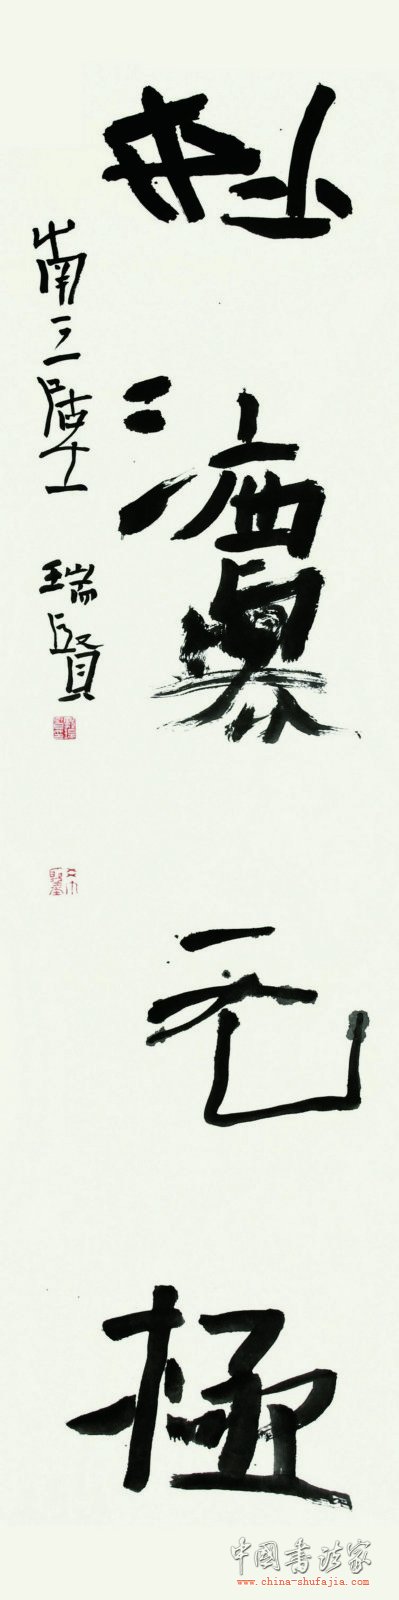 妙
无極
南三居士 瑞賢
中國書法家
www.china-shufajia.com